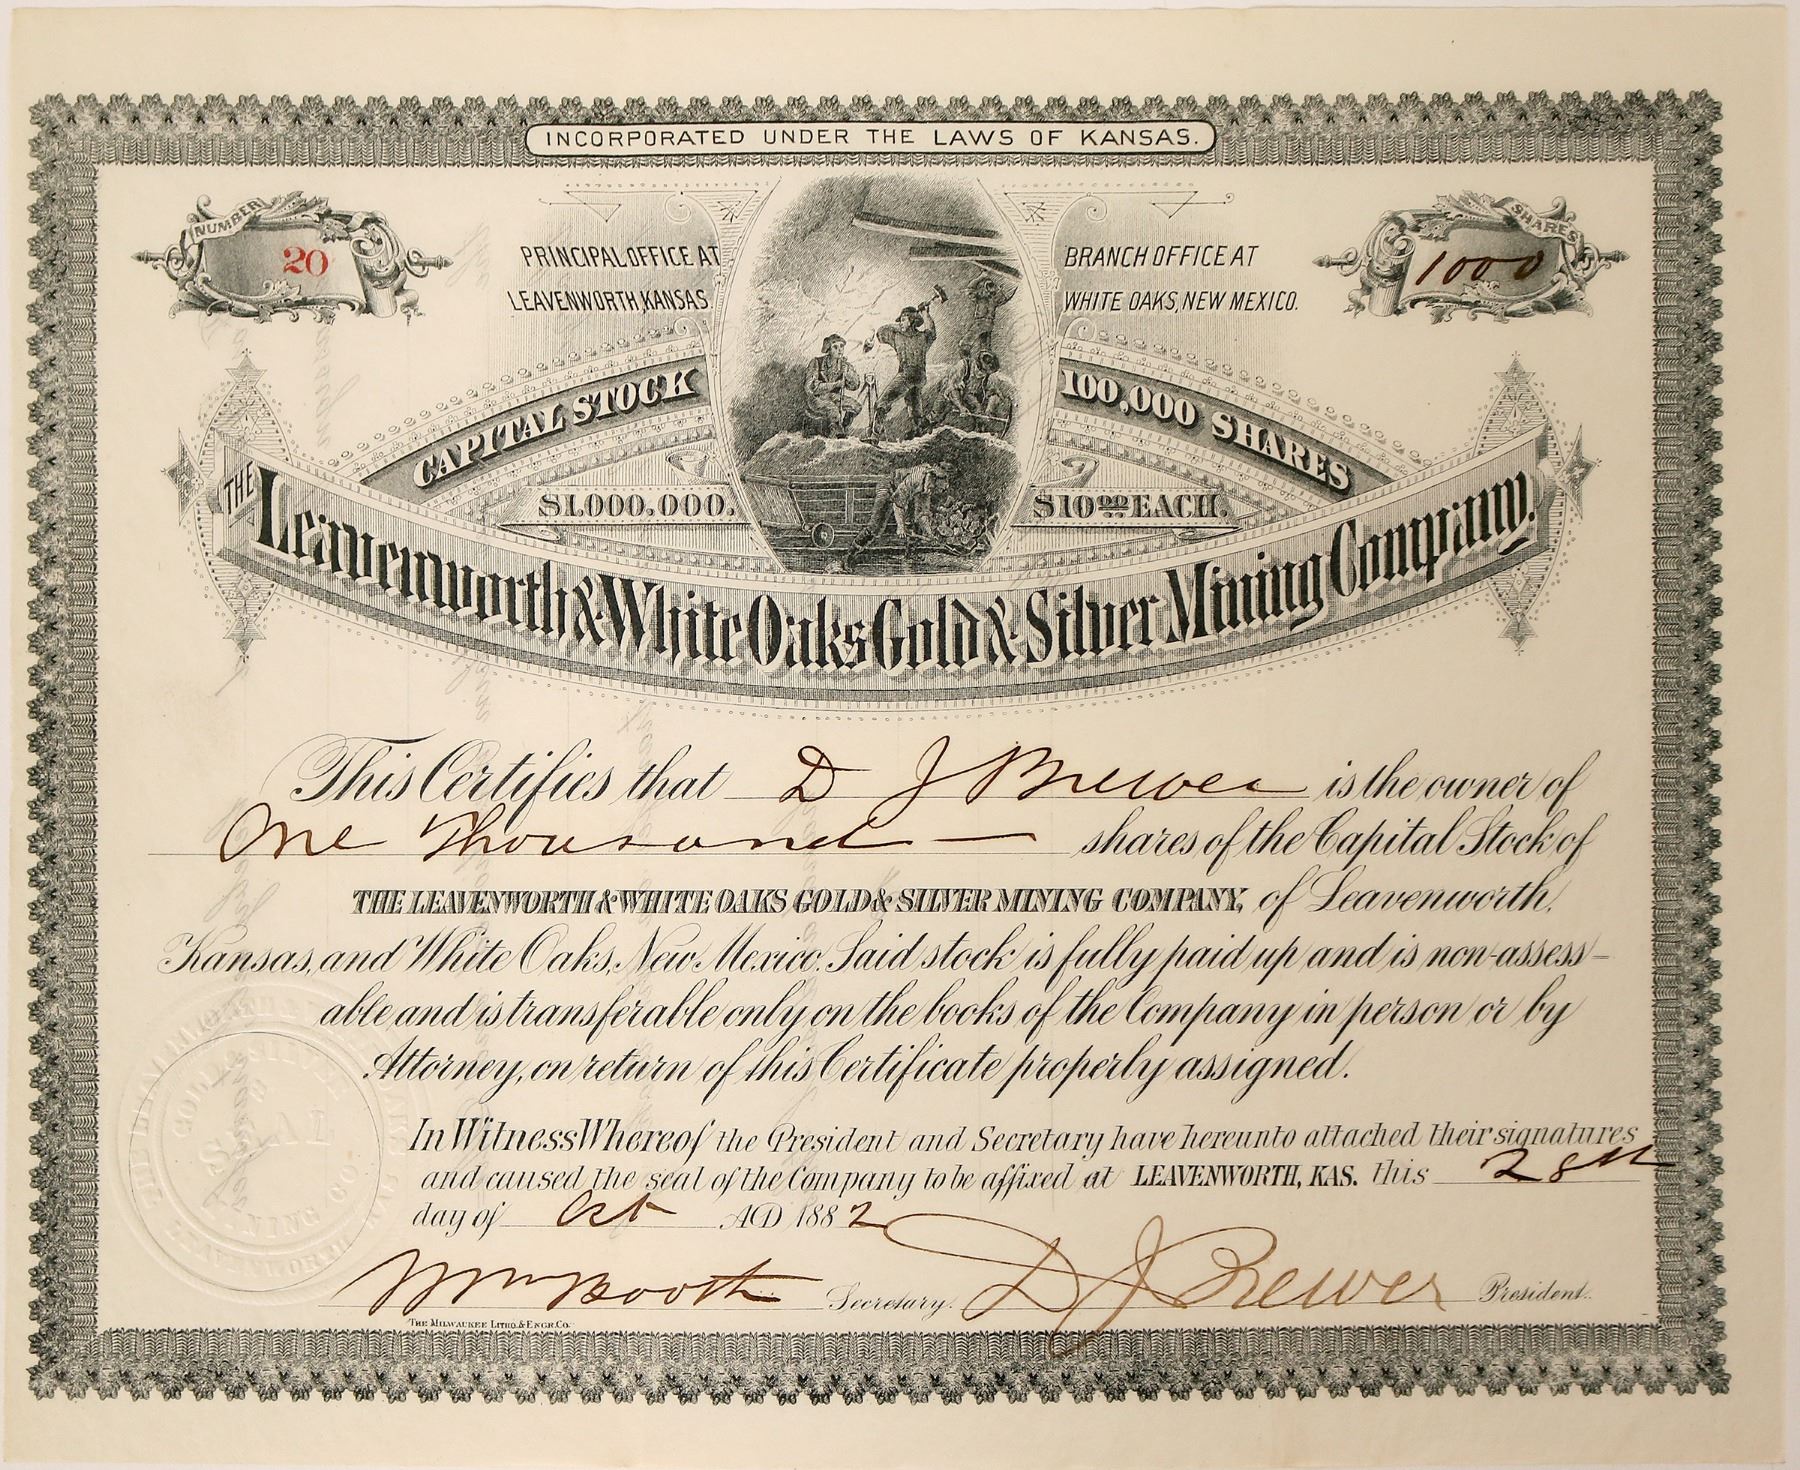 INCORPORATED UNDER THE LAWS OF KANSAS.
NUMBER
20
PRINCIPAL OFFICE AT
LEAVENWORTH, KANSAS.
BRANCH OFFICE AT
WHITE OAKS, NEW MEXICO.
SHARES
1000
CAPITAL STOCK
100,000 SHARES
$1,000,000.
$10 00 EACH.
THE Leavenworth & White Oaks Gold & Silver Mining Company.
This Certifies that D J Brewer is the owner of
One Thousand — shares of the Capital Stock of
THE LEAVENWORTH & WHITE OAKS GOLD & SILVER MINING COMPANY, of Leavenworth,
Kansas, and White Oaks, New Mexico. Said stock is fully paid up and is non-assess-
able and is transferable only on the books of the Company in person or by
Attorney, on return of this Certificate properly assigned.
In Witness Whereof the President and Secretary have hereunto attached their signatures
and caused the seal of the Company to be affixed at LEAVENWORTH, KAS. this 28th
day of Oct AD 1882
Wm Booth Secretary. D J Brewer President.
THE MILWAUKEE LITHO. & ENGR. CO.
SEAL